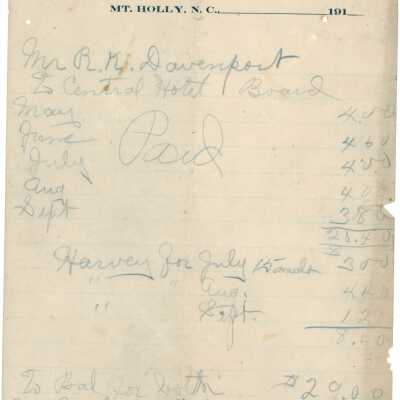 MT. HOLLY, N. C., 191
Mr R. K. Davenport
To Central Hotel Board
May 4.00
June 4.60
Paid
July 4.00
Aug 4.00
Sept 3.80
20.40
Harvey for July 3.00
" " Aug. 4.40
" " Sept. 1.20
8.60
To Bal for both $29.00